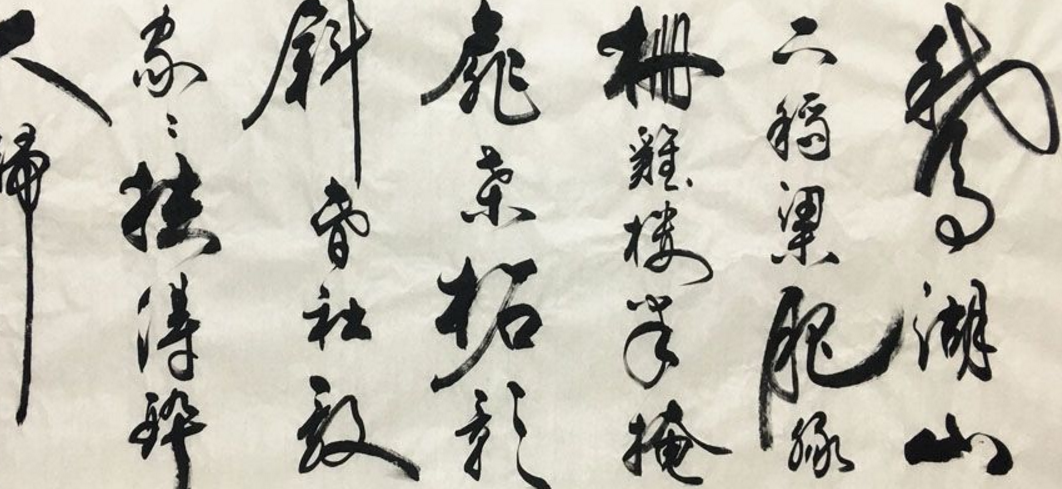 鵞湖山
下稻粱肥豚
柵雞棲半掩
扉桒柘影
斜春社散
家々扶得醉
人歸